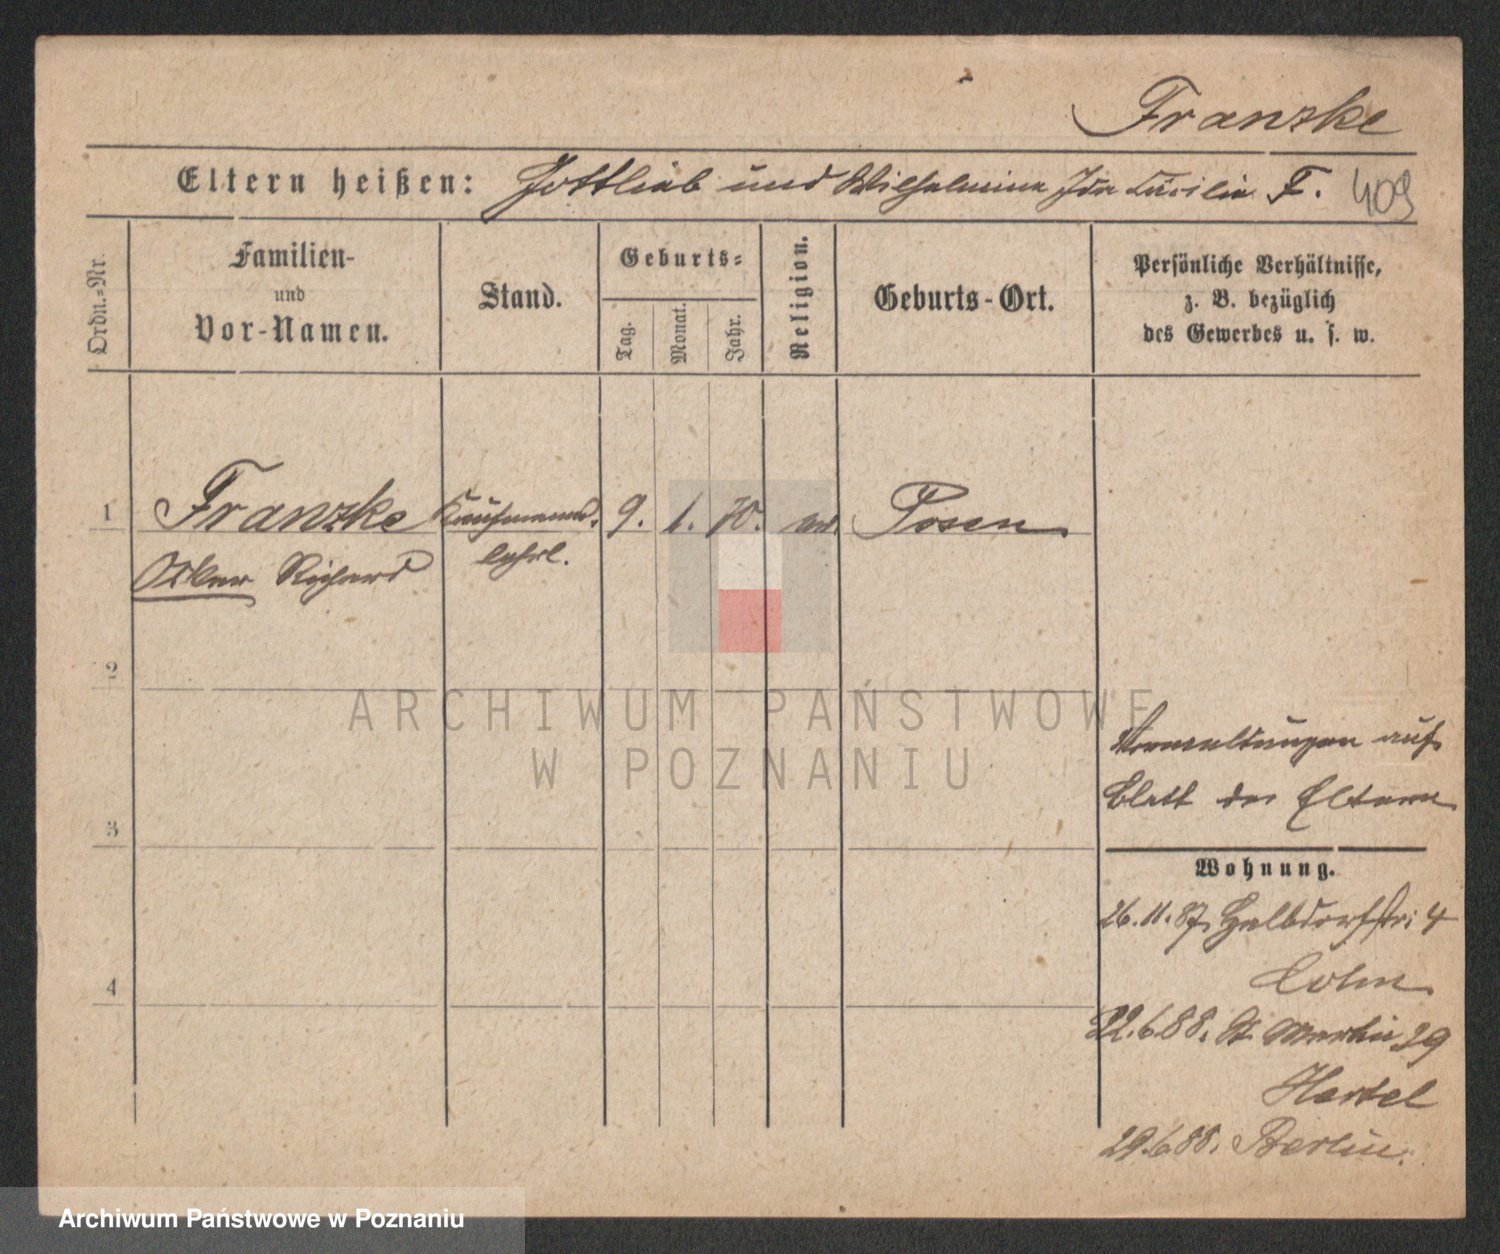 Franzke
Eltern heißen: Gottlieb und Wilhelmine Ida Cäcilie F. 409
Ordn.-Nr.
Familien-
und
Vor-Namen.
Stand.
Geburts-
Tag.
Monat.
Jahr.
Religion.
Geburts-Ort.
Persönliche Verhältnisse,
z. B. bezüglich
des Gewerbes u. s. w.
1 Franzke Kaufmanns- 9. 1. 70. Posen
Oskar Richard lehrl.
2
ARCHIWUM PAŃSTWOWE
W POZNANIU
auf
Blatt der Eltern
3
Wohnung.
26.11.87. Halbdorfstr. 4
Cohn
4
22.6.88. St. Martin 29
Hartel
29.6.88. Berlin.
Archiwum Państwowe w Poznaniu